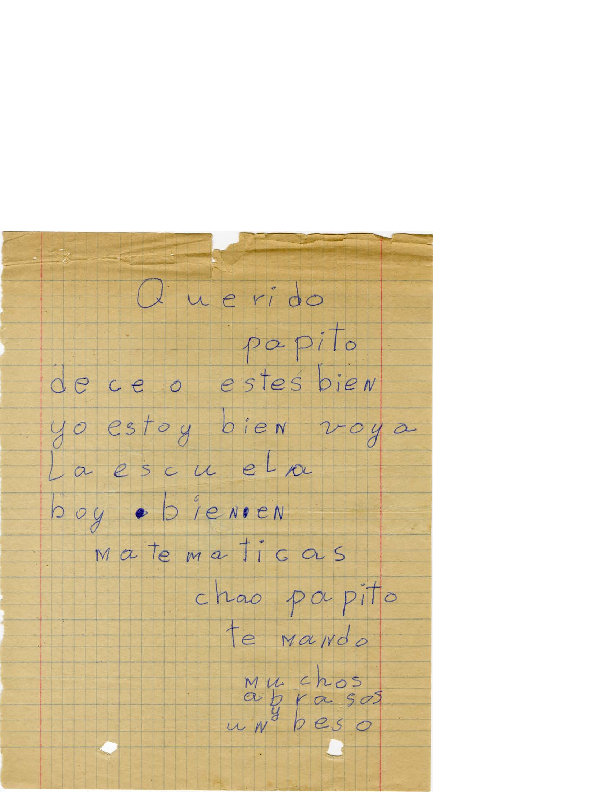 Querido
papito
deceo estes bien
yo estoy bien voy a
La escuela
boy bien en
matematicas
chao papito
te mando
muchos
abrasos
y
un beso